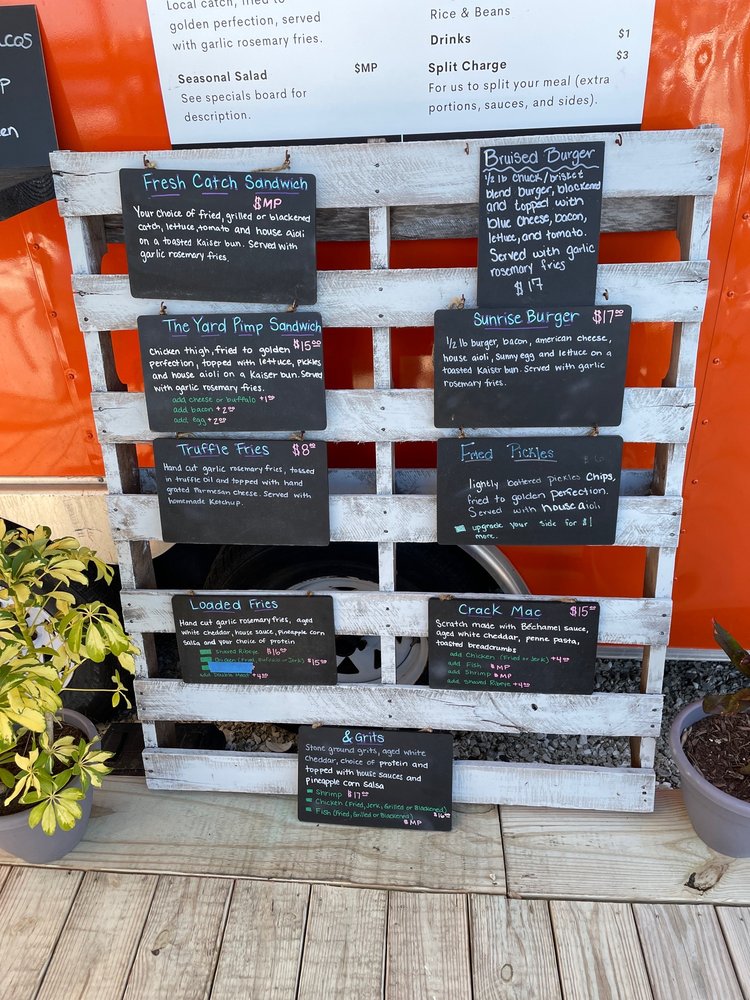 acos
P
en
Local catch, fried to
golden perfection, served
with garlic rosemary fries.
Seasonal Salad $MP
See specials board for
description.
Rice & Beans
Drinks $1
Split Charge $3
For us to split your meal (extra
portions, sauces, and sides).
Fresh Catch Sandwich
$MP
Your choice of fried, grilled or blackened
catch, lettuce, tomato and house aioli
on a toasted Kaiser bun. Served with
garlic rosemary fries.
Bruised Burger
1/2 lb chuck/brisket
blend burger, blackened
and topped with
blue cheese, bacon,
lettuce, and tomato.
Served with garlic
rosemary fries
$17
The Yard Pimp Sandwich
Chicken thigh, fried to golden $15.00
perfection, topped with lettuce, pickles
and house aioli on a Kaiser bun. Served
with garlic rosemary fries.
add cheese or buffalo +1.00
add bacon +2.00
add egg +2.00
Sunrise Burger $17.00
1/2 lb burger, bacon, american cheese,
house aioli, sunny egg and lettuce on a
toasted Kaiser bun. Served with garlic
rosemary fries.
Truffle Fries $8.00
Hand cut garlic rosemary fries, tossed
in truffle oil and topped with hand
grated Parmesan cheese. Served with
homemade Ketchup.
Fried Pickles
lightly battered pickles chips,
fried to golden perfection.
Served with house aioli
upgrade your side for $1
more.
Loaded Fries
Hand cut garlic rosemary fries, aged
white cheddar, house sauce, pineapple corn
salsa and your choice of protein
Shaved Ribeye $16.00
Chicken (Fried, Buffalo or Jerk) $15.00
add Double Meat +4.00
Crack Mac $15.00
Scratch made with Béchamel sauce,
aged white cheddar, penne pasta,
toasted breadcrumbs
add Chicken (Fried or Jerk) +4.00
add Fish $MP
add Shrimp $MP
add Shaved Ribeye +4.00
& Grits
Stone ground grits, aged white
cheddar, choice of protein and
topped with house sauces and
pineapple corn salsa
Shrimp $17.00
Chicken (Fried, Jerk, Grilled or Blackened) $16.00
Fish (Fried, Grilled or Blackened)
$MP